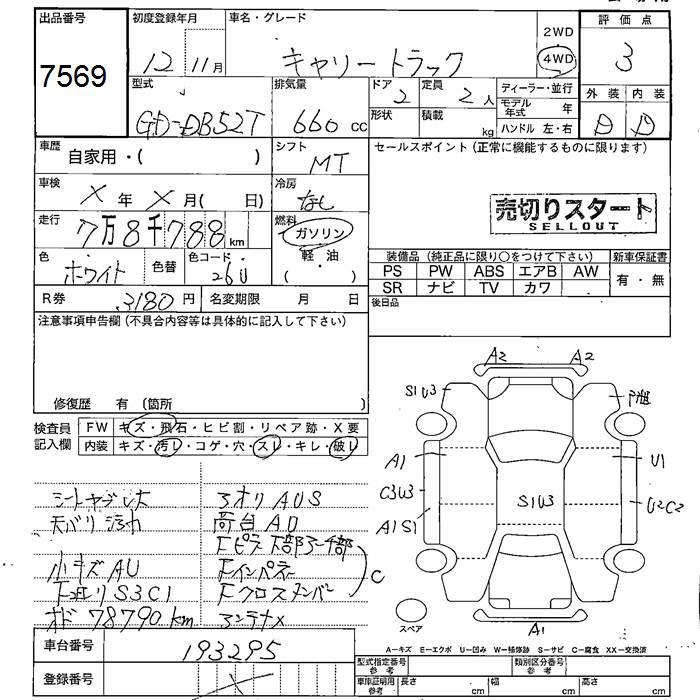 出品番号
7569
初度登録年月
12年 11月
車名・グレード
キャリートラック
2WD
4WD
評価点
3
外装 内装
D D
型式
GD-DB52T
排気量
660 cc
ドア
2
定員
2人
形状
積載
kg
ディーラー・並行
モデル年式 年
ハンドル 左・右
車歴
自家用・( )
シフト
MT
セールスポイント(正常に機能するものに限ります)
売切りスタート
SELLOUT
車検
X 年 X 月( 日)
冷房
なし
走行
7万8千788 km
燃料
ガソリン
軽・油
( )
色
ホワイト
色替
色コード
26U
装備品(純正品に限り〇をつけて下さい)
新車保証書
PS PW ABS エアB AW
SR ナビ TV カワ
有・無
R券
3180 円
名変期限 月 日
後日品
注意事項申告欄(不具合内容等は具体的に記入して下さい)
修復歴 有(箇所 )
検査員記入欄
FW キズ・飛石・ヒビ割・リペア跡・X要
内装 キズ・汚レ・コゲ・穴・スレ・キレ・破レ
シートヤブレ大
天バリ汚れ
小キズAU
S3C1
78790km
アオリAUS
荷台AU
Fインパネ
Fクロスメンバー
C
アンテナX
A2 A2
S1U3
A1
U1
C3U3
S1U3
U2C2
A1S1
スペア
A1
A―キズ E―エクボ U―凹み W―補修跡 S―サビ C―腐食 XX―交換済
車台番号
193295
登録番号
型式指定番号 参考
類別区分番号 参考
車庫証明用 参考
長さ cm
幅 cm
高さ cm